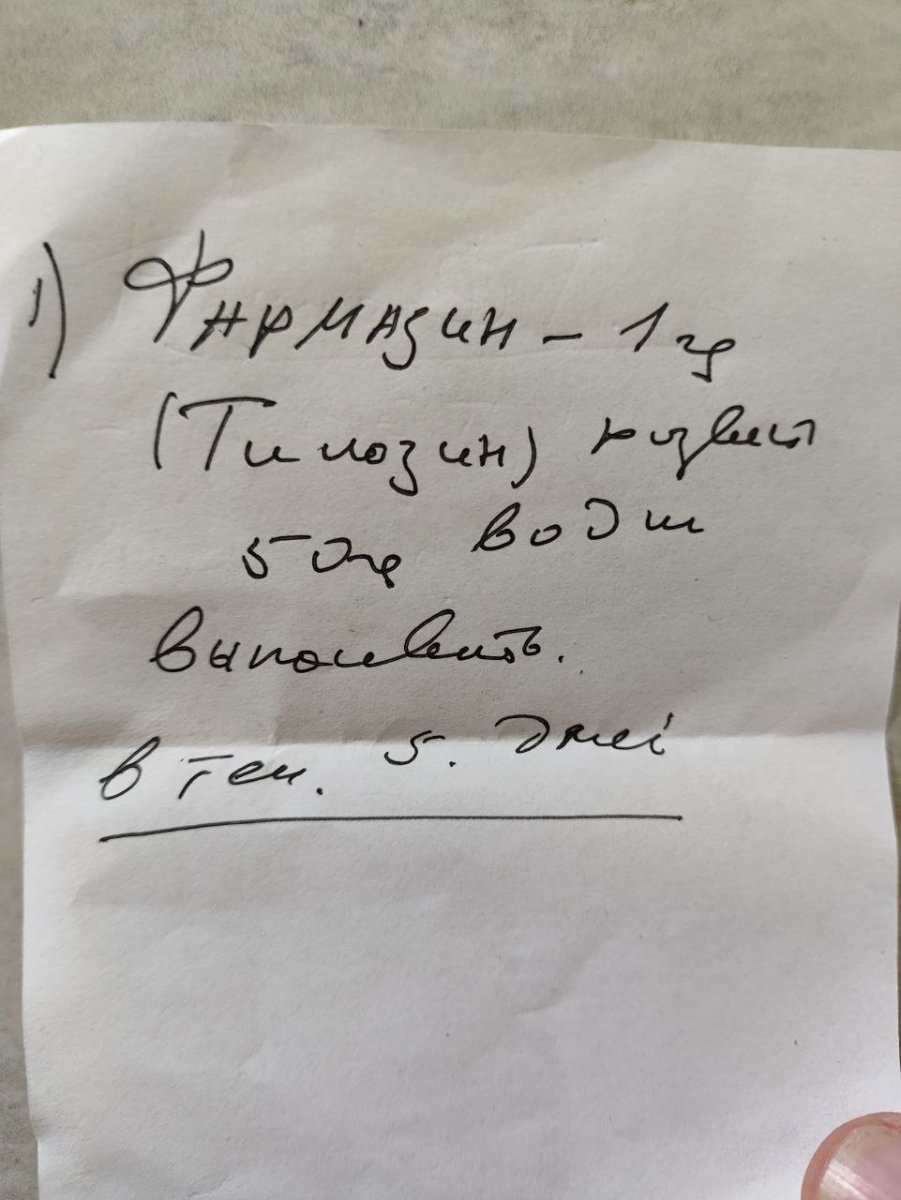 1) Фармазин - 1 гр
(Тилозин) развест
50 гр воды
выпаивать.
в теч. 5. дней